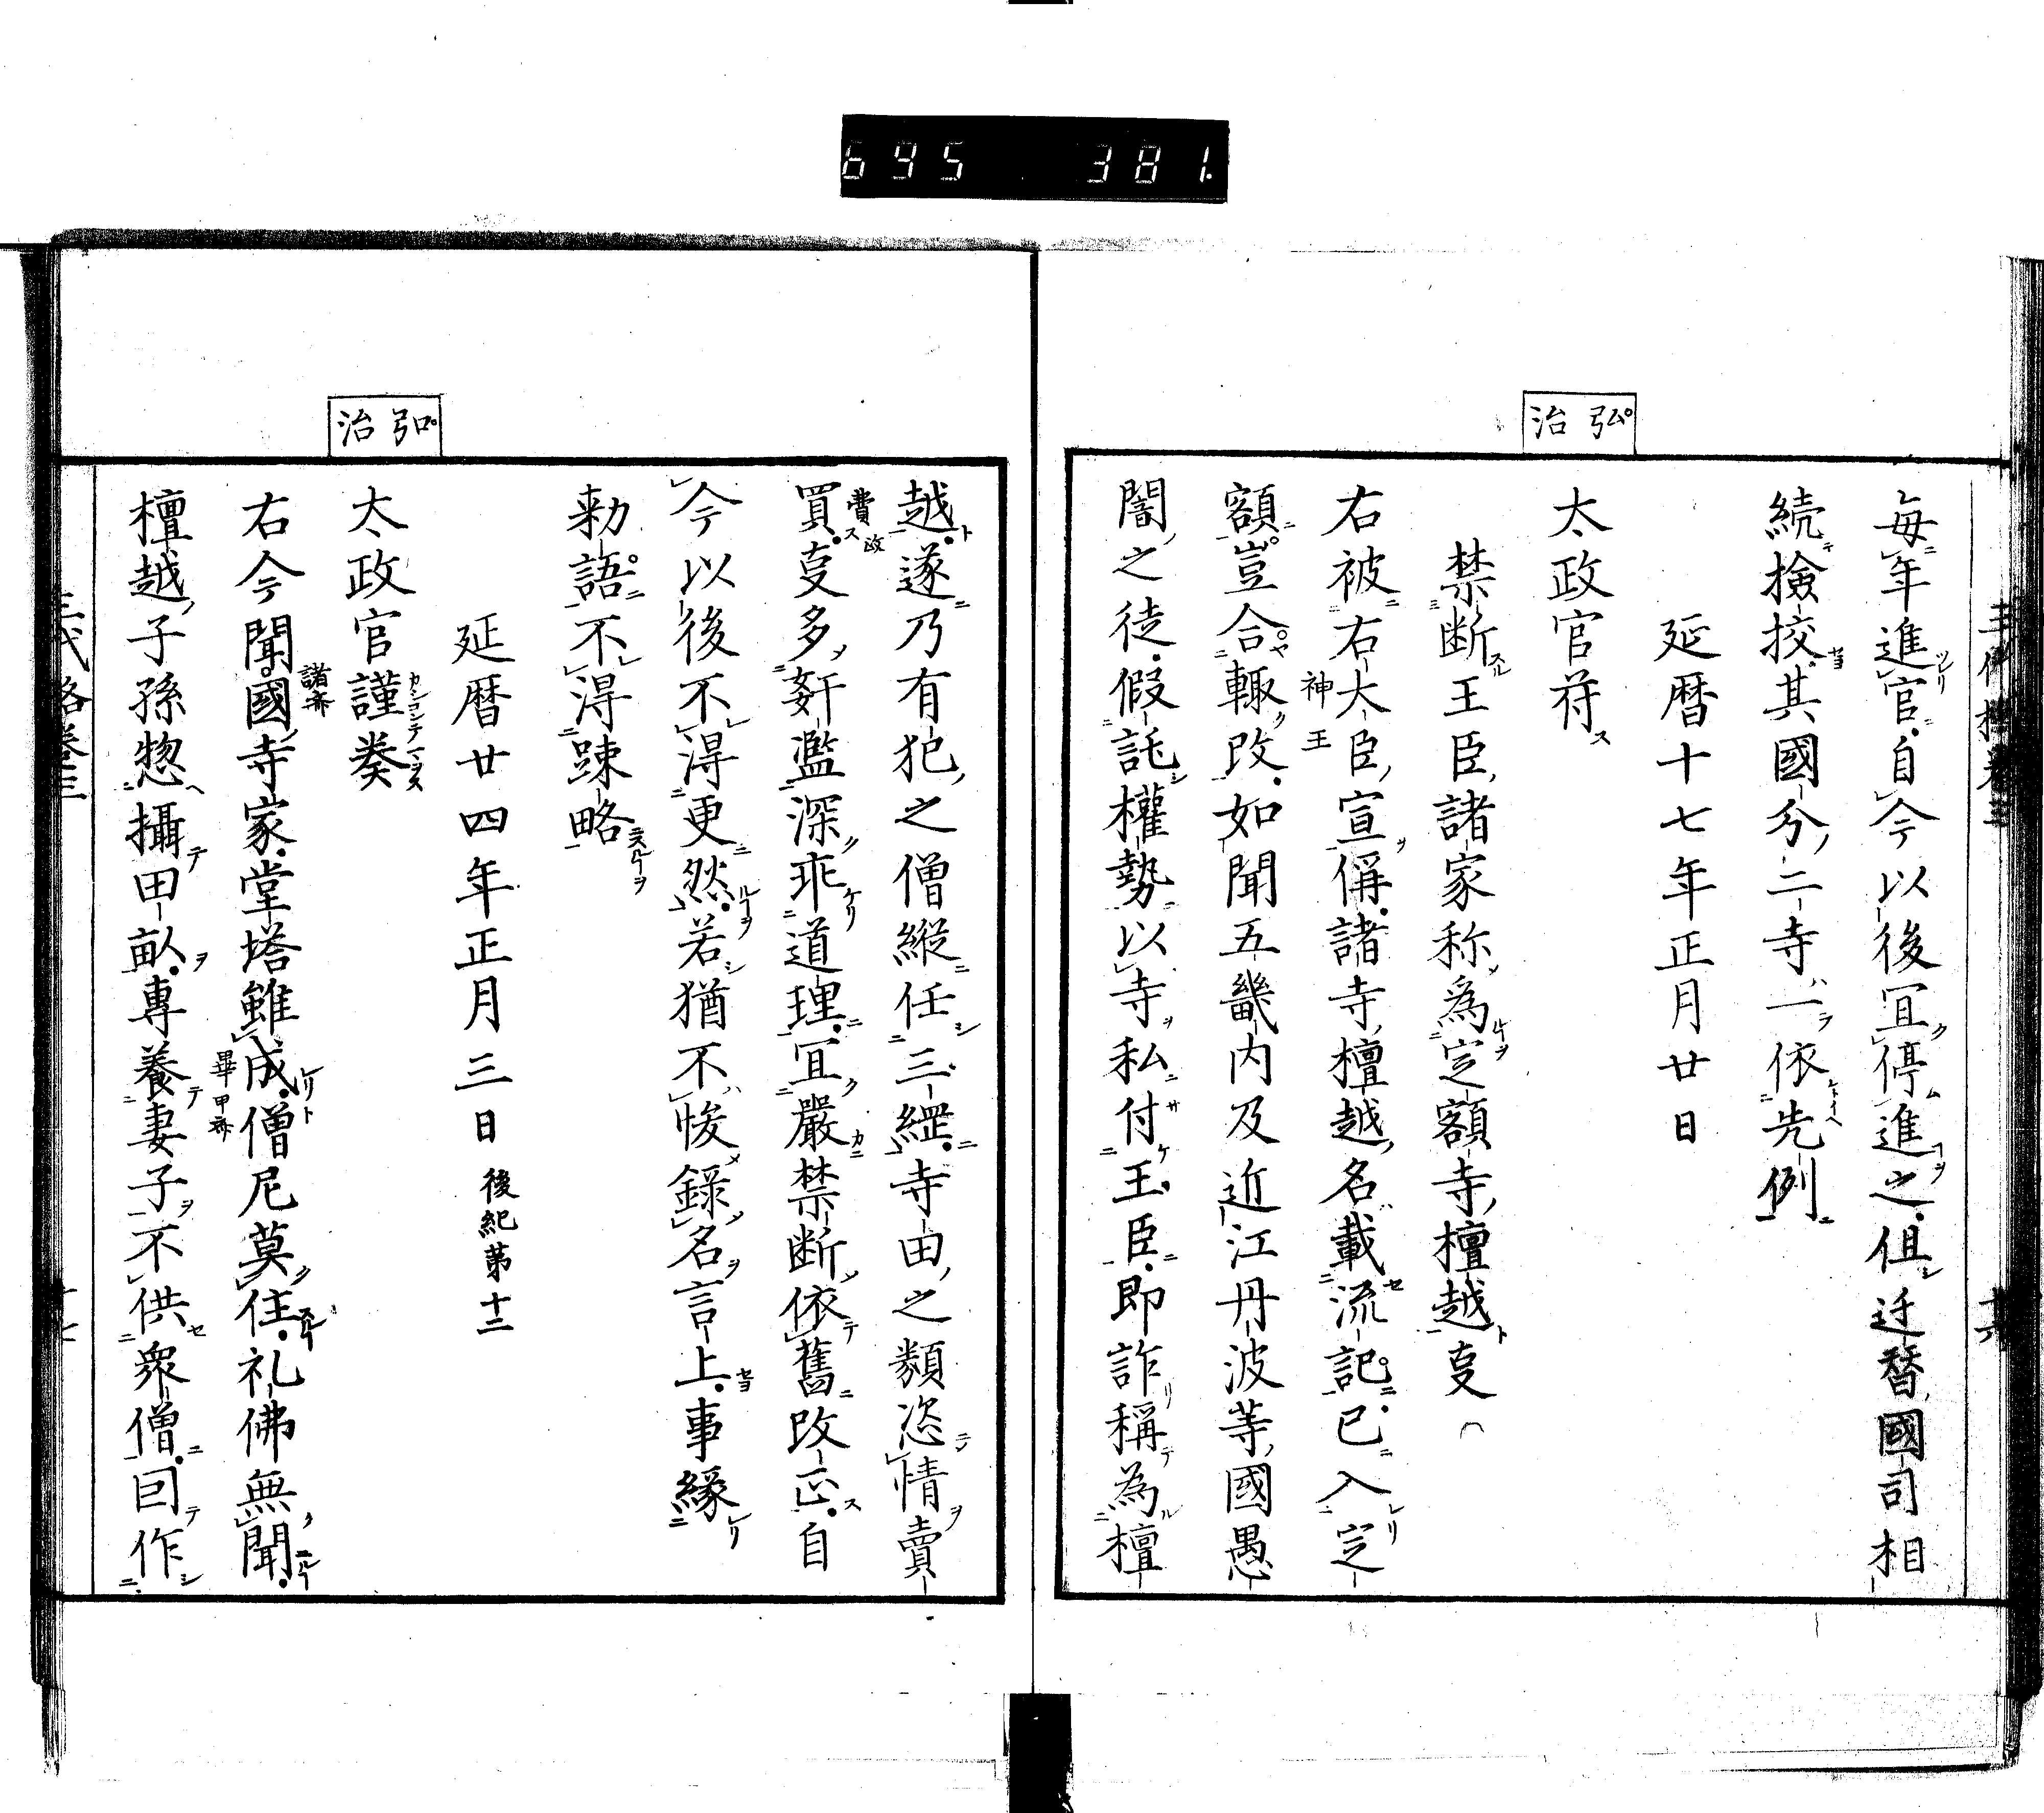 695 381
弘治
毎年進官自今以後冝停進之但迁替國司相
続撿挍其國分二寺一依先例
延暦十七年正月廿日
太政官符
禁断王臣諸家称為定額寺檀越㕝
右被右大臣宣偁諸寺檀越名載流記已入定
神王
額豈合輙改如聞五畿内及近江丹波等國愚
闇之徒假託權勢以寺私付王臣即詐稱為檀
弘治
越遂乃有犯之僧縱任三綱寺田之類恣情賣
買㕝多奸濫深乖道理冝嚴禁断依舊改正自
費 政
今以後不淂更然若猶不悛録名言上事縁
勅語不淂踈略
延暦廿四年正月三日 後紀第十二
太政官謹奏
右今聞國寺家堂塔雖成僧尼莫住礼佛無聞
諸齋
畢甲齋
檀越子孫惣攝田畝專養妻子不供衆僧囙作